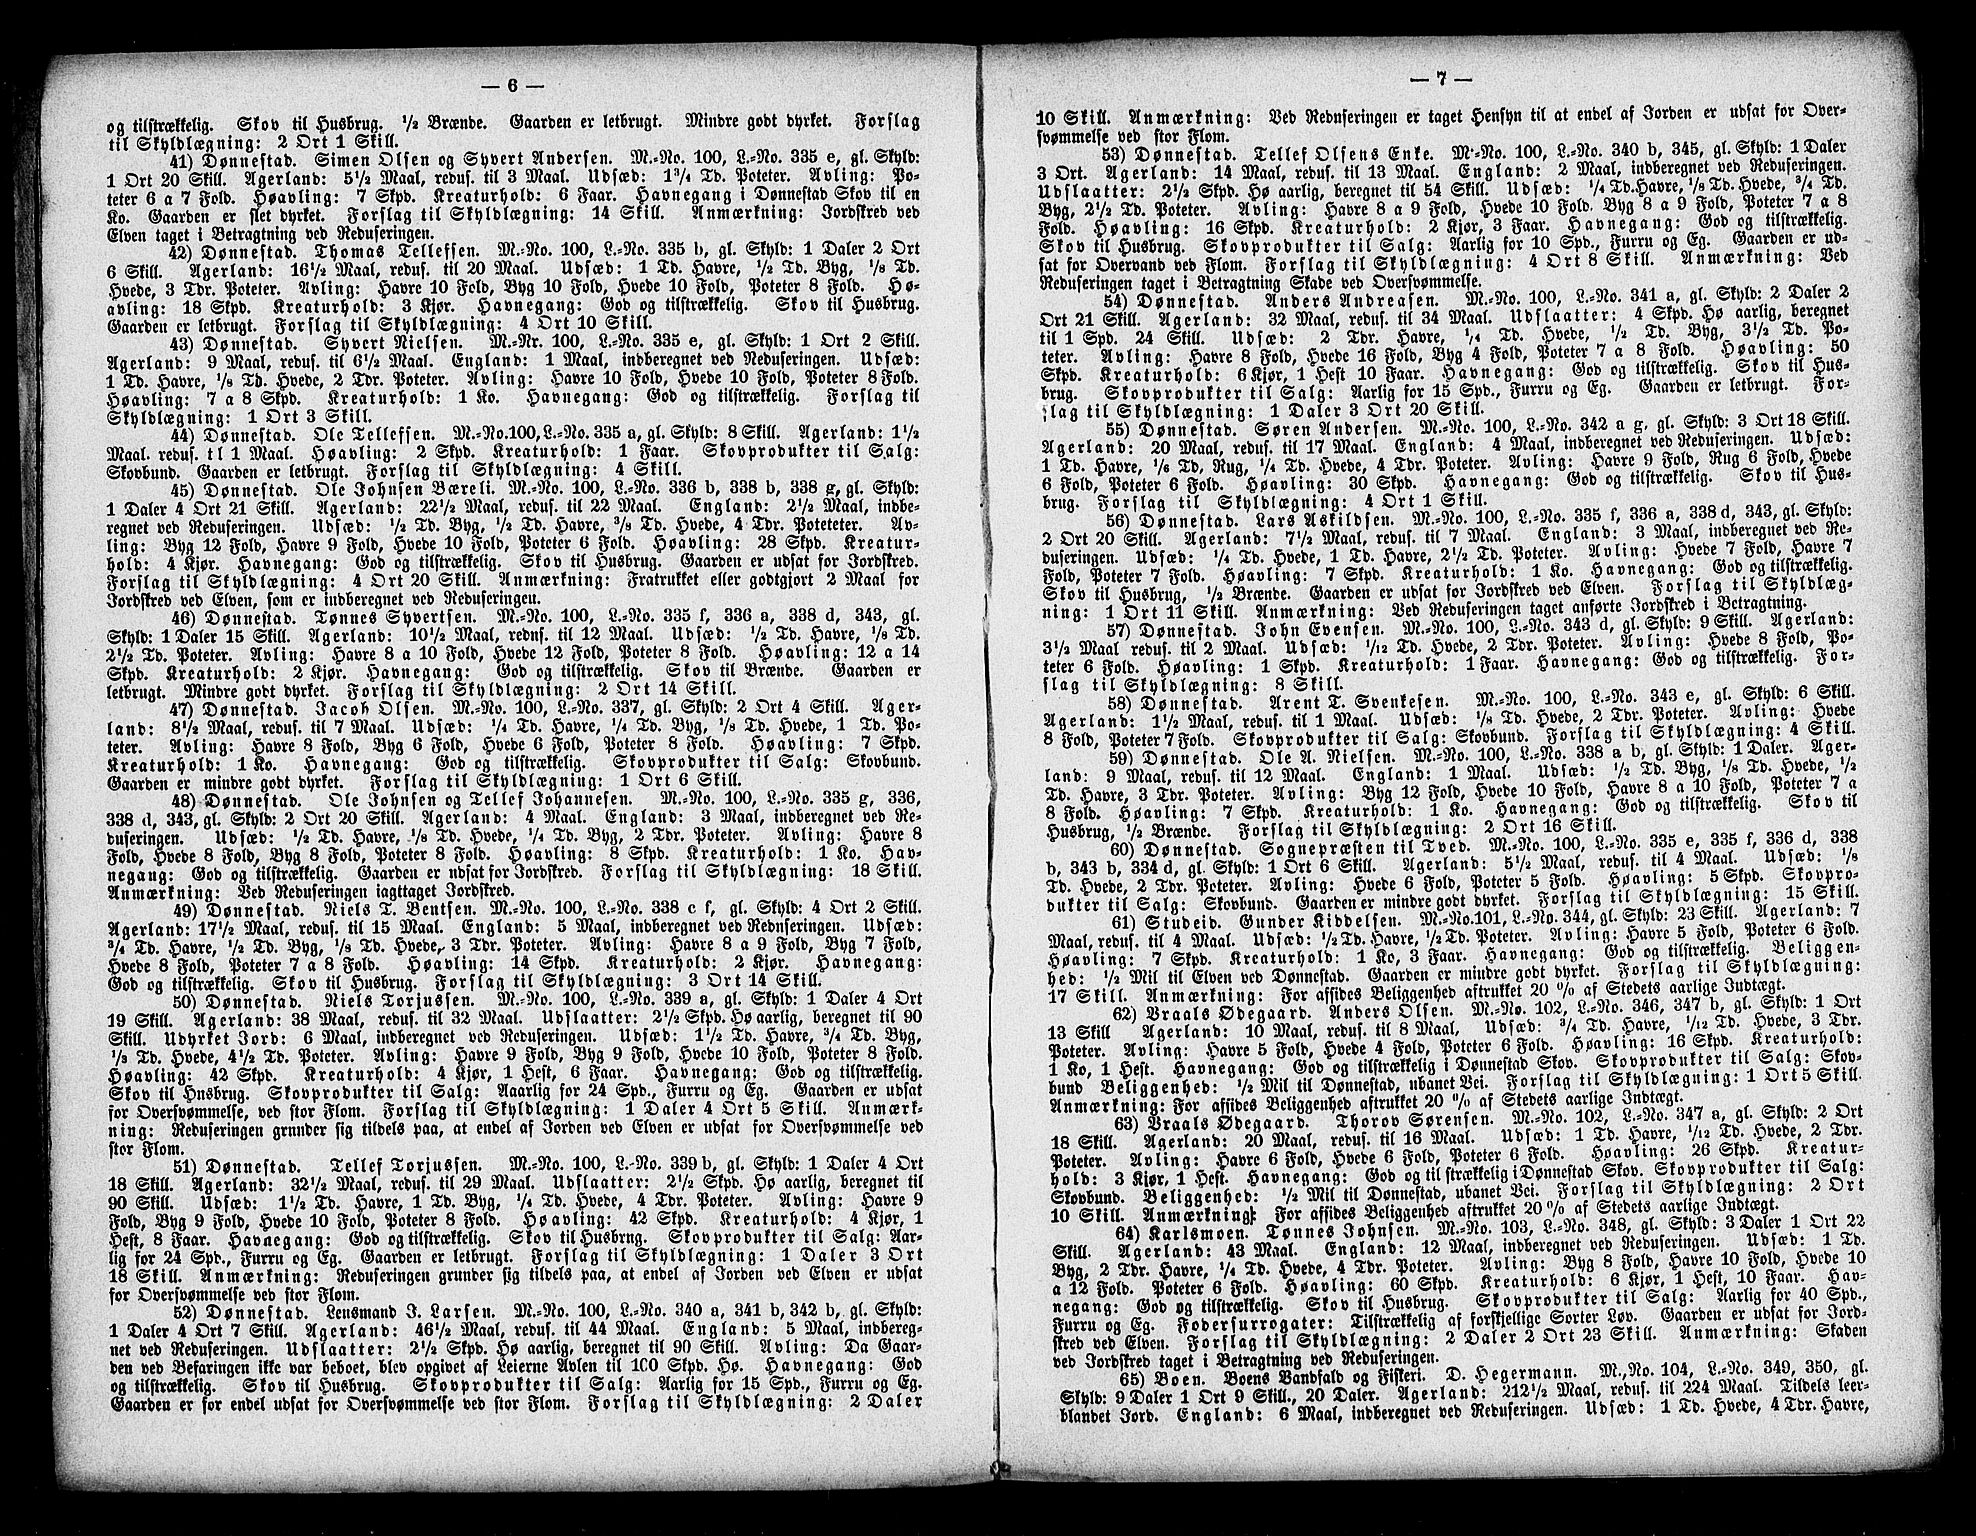 — 6 —
og tilstrækkelig. Skov til Husbrug. ½ Brænde. Gaarden er letbrugt. Mindre godt dyrket. Forslag
til Skyldlægning: 2 Ort 1 Skill.
41) Dønnestad. Simen Olsen og Syvert Andersen. M.-No. 100, L.-No. 335 e, gl. Skyld:
1 Ort 20 Skill. Agerland: 5½ Maal, redus. til 3 Maal. Udsæd: 1¾ Td. Poteter. Avling: Po-
teter 6 a 7 Fold. Høavling: 7 Skpd. Kreaturhold: 6 Faar. Havnegang i Dønnestad Skov til en
Ko. Gaarden er slet dyrket. Forslag til Skyldlægning: 14 Skill. Anmærkning: Jordskred ved
Elven taget i Betragtning ved Reduseringen.
42) Dønnestad. Thomas Tellefsen. M.-No. 100, L.-No. 335 b, gl. Skyld: 1 Daler 2 Ort
6 Skill. Agerland: 16½ Maal, redus. til 20 Maal. Udsæd: 1 Td. Havre, ½ Td. Byg, ⅛ Td.
Hvede, 3 Tdr. Poteter. Avling: Havre 10 Fold, Byg 10 Fold, Hvede 10 Fold, Poteter 8 Fold. Hø-
avling: 18 Skpd. Kreaturhold: 3 Kjør. Havnegang: God og tilstrækkelig. Skov til Husbrug.
Gaarden er letbrugt. Forslag til Skyldlægning: 4 Ort 10 Skill.
43) Dønnestad. Syvert Nielsen. M.-Nr. 100, L.-No. 335 e, gl. Skyld: 1 Ort 2 Skill.
Agerland: 9 Maal, redus. til 6½ Maal. England: 1 Maal, indberegnet ved Reduseringen. Udsæd:
1 Td. Havre, ⅛ Td. Hvede, 2 Tdr. Poteter. Avling: Havre 10 Fold, Hvede 10 Fold, Poteter 8 Fold.
Høavling: 7 a 8 Skpd. Kreaturhold: 1 Ko. Havnegang: God og tilstrækkelig. Forslag til
Skyldlægning: 1 Ort 3 Skill.
44) Dønnestad. Ole Tellefsen. M.-No. 100, L.-No. 335 a, gl. Skyld: 8 Skill. Agerland: 1½
Maal. redus. tl 1 Maal. Høavling: 2 Skpd. Kreaturhold: 1 Faar. Skovprodukter til Salg:
Skovbund. Gaarden er letbrugt. Forslag til Skyldlægning: 4 Skill.
45) Dønnestad. Ole Johnsen Bæreli. M.-No. 100, L.-No. 336 b, 338 b, 338 g, gl. Skyld:
1 Daler 4 Ort 21 Skill. Agerland: 22½ Maal, redus. til 22 Maal. England: 2½ Maal, indbe-
regnet ved Reduseringen. Udsæd: ½ Td. Byg, ½ Td. Havre, ⅜ Td. Hvede, 4 Tdr. Poteteter. Av-
ling: Byg 12 Fold, Havre 9 Fold, Hvede 10 Fold, Poteter 6 Fold. Høavling: 28 Skpd. Kreatur-
hold: 4 Kjør. Havnegang: God og tilstrækkelig. Skov til Husbrug. Gaarden er udsat for Jordskred.
Forslag til Skyldlægning: 4 Ort 20 Skill. Anmærkning: Fratrukket eller godtgjort 2 Maal for
Jordskred ved Elven, som er indberegnet ved Reduseringen.
46) Dønnestad. Tønnes Syvertsen. M.-No. 100, L.-No. 335 f, 336 a, 338 d, 343, gl.
Skyld: 1 Daler 15 Skill. Agerland: 10½ Maal, redus. til 12 Maal. Udsæd: ½ Td. Havre, ⅛ Td.
2½ Td. Poteter. Avling: Havre 8 a 10 Fold, Hvede 12 Fold, Poteter 8 Fold. Høavling: 12 a 14
Skpd. Kreaturhold: 2 Kjør. Havnegang: God og tilstrækkelig. Skov til Brænde. Gaarden er
letbrugt. Mindre godt dyrket. Forslag til Skyldlægning: 2 Ort 14 Skill.
47) Dønnestad. Jacob Olsen. M.-No. 100, L.-No. 337, gl. Skyld: 2 Ort 4 Skill. Ager-
land: 8½ Maal, redus. til 7 Maal. Udsæd: ¼ Td. Havre, ¼ Td. Byg, ⅛ Td. Hvede, 1 Td. Po-
teter. Avling: Havre 8 Fold, Byg 6 Fold, Hvede 6 Fold, Poteter 8 Fold. Høavling: 7 Skpd.
Kreaturhold: 1 Ko. Havnegang: God og tilstrækkelig. Skovprodukter til Salg: Skovbund.
Gaarden er mindre godt dyrket. Forslag til Skyldlægning: 1 Ort 6 Skill.
48) Dønnestad. Ole Johnsen og Tellef Johannesen. M.-No. 100, L.-No. 335 g, 336,
338 d, 343, gl. Skyld: 2 Ort 20 Skill. Agerland: 4 Maal. England: 3 Maal, indberegnet ved Re-
duseringen. Udsæd: ½ Td. Havre, ⅛ Td. Hvede, ¼ Td. Byg, 2 Tdr. Poteter. Avling: Havre 8
Fold, Hvede 8 Fold, Byg 8 Fold, Poteter 8 Fold. Høavling: 8 Skpd. Kreaturhold: 1 Ko. Hav-
negang: God og tilstrækkelig. Gaarden er udsat for Jordskred. Forslag til Skyldlægning: 18 Skill.
Anmærkning: Ved Reduseringen iagttaget Jordskred.
49) Dønnestad. Niels T. Bentsen. M.-No. 100, L.-No. 338 c f, gl. Skyld: 4 Ort 2 Skill.
Agerland: 17½ Maal, redus. til 15 Maal. England: 5 Maal, indberegnet ved Reduseringen. Udsæd:
¾ Td. Havre, ½ Td. Byg, ⅛ Td. Hvede, 3 Tdr. Poteter. Avling: Havre 8 a 9 Fold, Byg 7 Fold,
Hvede 8 Fold, Poteter 7 a 8 Fold. Høavling: 14 Skpd. Kreaturhold: 2 Kjør. Havnegang:
God og tilstrækkelig. Skov til Husbrug. Forslag til Skyldlægning: 3 Ort 14 Skill.
50) Dønnestad. Niels Torjussen. M.-No. 100, L.-No. 339 a, gl. Skyld: 1 Daler 4 Ort
19 Skill. Agerland: 38 Maal, redus. til 32 Maal. Udslaatter: 2½ Skpd. Hø aarlig, beregnet til 90
Skill. Udyrket Jord: 6 Maal, indberegnet ved Reduseringen. Udsæd: 1½ Td. Havre, ¾ Td. Byg,
⅓ Td. Hvede, 4½ Td. Poteter. Avling: Havre 9 Fold, Byg 9 Fold, Hvede 10 Fold, Poteter 8 Fold.
Høavling: 42 Skpd. Kreaturhold: 4 Kjør, 1 Hest, 6 Faar. Havnegang: God og tilstrækkelig.
Skov til Husbrug. Skovprodukter til Salg: Aaarlig for 24 Spd., Furru og Eg. Gaarden er udsat
for Oversvømmelse, ved stor Flom. Forslag til Skyldlægning: 1 Daler 4 Ort 5 Skill. Anmærk-
ning: Reduseringen grunder sig tildels paa, at endel af Jorden ved Elven er udsat for Oversvømmelse ved
stor Flom.
51) Dønnestad. Tellef Torjussen. M.-No. 100, L.-No. 339 b, gl. Skyld: 1 Daler 4 Ort
18 Skill. Agerland: 32½ Maal, redus. til 29 Maal. Udslaatter: 2½ Skpd. Hø aarlig, beregnet til
90 Skill. Udsæd: 1½ Td. Havre, 1 Td. Byg, ¼ Td. Hvede, 4 Tdr. Poteter. Avling: Havre 9
Fold, Byg 9 Fold, Hvede 10 Fold, Poteter 8 Fold. Høavling: 42 Skpd. Kreaturhold: 4 Kjør, 1
Hest, 8 Faar. Havnegang: God og tilstrækkelig. Skov til Husbrng. Skovprodukter til Salg: Aar-
lig for 24 Spd., Furru og Eg. Gaarden er letbrugt. Forslag til Skyldlægning: 1 Daler 3 Ort
18 Skill. Anmærkning: Reduseringen grunder sig tildels paa, at endel af Jorden ved Elven er udsat
for Oversvømmelse ved stor Flom.
52) Dønnestad. Lensmand J. Larsen. M.-No. 100, L.-No. 340 a, 341 b, 342 b, gl. Skyld:
1 Daler 4 Ort 7 Skill. Agerland: 46½ Maal, redus. til 44 Maal. England: 5 Maal, indbereg-
net ved Reduseringen. Udslaatter: 2½ Skpd. Hø aarlig, beregnet til 90 Skill. Avling: Da Gaar-
den ved Befaringen ikke var beboet, blev opgivet af Leierne Avlen til 100 Skpd. Hø. Havnegang: God
og tilstrækkelig. Skov til Husbrug. Skovprodukter til Salg: Aarlig for 15 Spd., Furru og Eg.
Gaarden er for endel udsat for Oversvømmelse ved stor Flom. Forslag til Skyldlægning: 2 Daler
— 7 —
10 Skill. Anmærkning: Ved Reduseringen er taget Hensyn til at endel af Jorden er udsat for Over-
svømmelse ved stor Flom.
53) Dønnestad. Tellef Olsens Enke. M.-No. 100, L.-No. 340 b, 345, gl. Skyld: 1 Daler
3 Ort. Agerland: 14 Maal, redus. til 13 Maal. England: 2 Maal, indberegnet ved Reduseringen.
Udslaatter: 2½ Skpd. Hø aarlig, beregnet til 54 Skill. Udsæd: ¼ Td. Havre, ⅛ Td. Hvede, ¾ Td.
Byg, 2½ Td. Poteter. Avling: Havre 8 a 9 Fold, Hvede 10 Fold. Byg 8 a 9 Fold, Poteter 7 a 8
Fold. Høavling: 16 Skpd. Kreaturhold: 2 Kjør, 3 Faar. Havnegang: God og tilstrækkelig.
Skov til Husbrug. Skovprodukter til Salg: Aarlig for 10 Spd., Furru og Eg. Gaarden er ud-
sat for Overvand ved Flom. Forslag til Skyldlægning: 4 Ort 8 Skill. Anmærkning: Ved
Reduseringen taget i Betragtning Skade ved Oversvømmelse.
54) Dønnestad. Anders Andreasen. M.-No. 100, L.-No. 341 a, gl. Skyld: 2 Daler 2
Ort 21 Skill. Agerland: 32 Maal, redus. til 34 Maal. Udslaatter: 4 Skpd. Hø aarlig, beregnet
til 1 Spd. 24 Skill. Udsæd: 2 Tdr. Havre, ¼ Td. Hvede, ½ Td. Byg, 3½ Td. Po-
teter. Avling: Havre 8 Fold, Hvede 16 Fold, Byg 4 Fold, Poteter 7 a 8 Fold. Høavling: 50
Skpd. Kreaturhold: 6 Kjør, 1 Hest 10 Faar. Havnegang: God og tilstrækkelig. Skov til Hus-
brug. Skovprodukter til Salg: Aarlig for 15 Spd, Furru og Eg. Gaarden er letbrugt. For-
slag til Skyldlægning: 1 Daler 3 Ort 20 Skill.
55) Dønnestad. Søren Andersen. M.-No. 100, L.-No. 342 a g. gl. Skyld: 3 Ort 18 Skill.
Agerland: 20 Maal, redus. til 17 Maal. England: 4 Maal, indberegnet ved Reduseringen. Udsæd:
1 Td. Havre, ⅛ Td, Rug, ¼ Td. Hvede, 4 Tdr. Poteter. Avling: Havre 9 Fold, Rug 6 Fold, Hvede
6 Fold, Poteter 6 Fold. Høavling: 30 Skpd. Havnegang: God og tilstrækkelig. Skov til Hus-
brug. Forslag til Skyldlægning: 4 Ort 1 Skill.
56) Dønnestad. Lars Askildsen. M.-No. 100, L.-No. 335 f, 336 a, 338 d, 343, gl. Skyld:
2 Ort 20 Skill. Agerland: 7½ Maal, redus. til 7 Maal. England: 3 Maal, indberegnet ved Re-
duseringen. Udsæd: ¼ Td. Hvede, 1 Td. Havre, 2½ Td. Poteter. Avling: Hvede 7 Fold, Havre 7
Fold, Poteter 7 Fold. Høavling: 7 Skpd. Kreaturhold: 1 Ko. Havnegang: God og tilstrækkelig.
Skov til Husbrug, ½ Brænde. Gaarden er udsat for Jordskred ved Elven. Forslag til Skyldlæg-
ning: 1 Ort 11 Skill. Anmærkning: Ved Reduseringen taget anførte Jordskred i Betragtning.
57) Dønnestad. John Evensen. M.-No. 100, L.-No. 343 d, gl. Skyld: 9 Skill. Agerland:
3½ Maal redus. til 2 Maal. Udsæd: 1/12 Td. Hvede, 2 Tdr. Poteter. Avling: Hvede 8 Fold, Po-
teter 6 Fold. Høavling: 1 Skpd. Kreaturhold: 1 Faar. Havnegang: God og tilstrækkelig. For-
slag til Skyldlægning: 8 Skill.
58) Dønnestad. Arent T. Svenkesen. M.-No. 100, L.-No. 343 e, gl. Skyld: 6 Skill.
Agerland: 1½ Maal, redus. til 1 Maal. Udsæd: ⅛ Td. Hvede, 2 Tdr. Poteter. Avling: Hvede
8 Fold, Poteter 7 Fold. Skovprodukter til Salg: Skovbund. Forslag til Skyldlægning: 4 Skill.
59) Dønnestad. Ole A. Nielsen. M.-No. 100, L.-No. 338 a b, gl. Skyld: 1 Daler. Ager-
land: 9 Maal, redus. til 12 Maal. England: 1 Maal. Udsæd: ½ Td. Byg, ⅛ Td. Hvede, ½
Td. Havre, 3 Tdr. Poteter. Avling: Byg 12 Fold, Hvede 10 Fold, Havre 8 a 10 Fold, Poteter 7 a
8 Fold. Høavling: 7 Skpd. Kreaturhold: 1 Ko. Havnegang: God og tilstrækkelig. Skov til
Husbrug, ½ Brænde. Forslag til Skyldlægning: 2 Ort 16 Skill.
60) Dønnestad. Sognepræsten til Tved. M.-No. 100, L.-No. 335 e, 335 f, 336 d, 338
b, 343 b, 334 d, gl. Skyld: 1 Ort 6 Skill. Agerland: 5½ Maal, redus. til 4 Maal. Udsæd: ⅛
Td. Hvede, 2 Tdr. Poteter. Avling: Hvede 6 Fold, Poteter 5 Fold. Høavling: 5 Skpd. Skovpro-
dukter til Salg: Skovbund. Gaarden er mindre godt dyrket. Forslag til Skyldlægning: 15 Skill.
61) Studeid. Gunder Kiddelsen. M.-No. 101, L.-No. 344, gl. Skyld: 23 Skill. Agerland: 7
Maal, redus. til 4 Maal. Udsæd: ½ Td. Havre, ½ Td. Poteter. Avling: Havre 5 Fold, Poteter 6 Fold.
Høavling: 7 Skpd. Kreaturhold: 1 Ko, 3 Faar. Havnegang: God og tilstrækkelig. Beliggen-
hed: ½ Mil til Elven ved Dønnestad. Gaarden er mindre godt dyrket. Forslag til Skyldlægning:
17 Skill. Anmærkning: For affides Beliggenhed aftrukket 20 % af Stedets aarlige Indtægt.
62) Vraals Ødegaard. Anders Olsen. M.-No. 102, L.-No. 346, 347 b, gl. Skyld: 1 Ort
13 Skill Agerland: 10 Maal, redus. til 8 Maal, Udsæd: ¾ Td. Havre, 1/12 Td. Hvede, 3 Tdr.
Poteter. Avling: Havre 5 Fold, Hvede 4 Fold, Poteter 6 Fold. Høavling: 16 Skpd. Kreaturhold:
1 Ko, 1 Hest. Havnegang: God og tilstrækkelig i Dønnestad Skov. Skovprodukter til Salg: Skov-
bund Beliggenhed: ½ Mil til Dønnestad, ubanet Vei. Forslag til Skyldlægning: 1 Ort 5 Skill.
Anmærkning: For affides Beliggenhed aftrukket 20 % af Stedets aarlige Indtægt.
63) Vraals Ødegaard. Thorov Sørensen. M.-No. 102, L.-No. 347 a, gl. Skyld: 2 Ort
18 Skill. Agerland: 20 Maal, redus. til 16 Maal. Udsæd: 1 Td. Havre, 1/12 Td. Hvede, 2 Tdr.
Poteter. Avling: Havre 6 Fold, Hvede 6 Fold, Poteter 6 Fold. Høavling: 26 Skpd. Kreatur-
hold: 3 Kjør, 1 Hest. Havnegang: God og tilstrækkelig i Dønnestad Skov. Skovprodukter til Salg:
Skovbund. Beliggenhed: ½ Mil til Dønnestad, ubanet Vei. Forslag til Skyldlægning: 2 Ort
10 Skill. Anmærkning: For affides Beliggenhed aftrukket 20 % af Stedets aarlige Indtægt.
64) Karlsmoen. Tønnes Johnsen. M.-No. 103, L.-No. 348, gl. Skyld: 3 Daler 1 Ort 22
Skill. Agerland: 43 Maal. England: 12 Maal, indberegnet ved Reduseringen. Udsæd: 1 Td.
Byg, 2 Tdr. Havre, ¼ Td. Hvede, 4 Tdr. Poteter. Avling: Byg 8 Fold, Havre 10 Fold, Hvede 10
a 12 Fold. Poteter 6 Fold. Høavling: 60 Skpd. Kreaturhold: 6 Kjør, 1 Hest, 10 Faar. Hav-
negang: God og tilstrækkelig. Skov til Husbrug. Skovprodukter til Salg: Aarlig for 40 Spd.,
Furru og Eg. Fodersurrogater: Tilstrækkelig af forskjellige Sorter Løv. Gaarden er udsat for Jord-
skred ved Elven. Forslag til Skyldlægning: 2 Daler 2 Ort 23 Skill. Anmærkning: Skaden
ved Jordskred taget i Betragtning ved Reduseringen.
65) Boen. Boens Vandfald og Fiskeri. D. Hegermann. M.-No. 104, L.-No. 349, 350, gl.
Skyld: 9 Daler 1 Ort 9 Skill., 20 Daler. Agerland: 212½ Maal, redus. til 224 Maal. Tildels leer-
blandet Jord. England: 6 Maal, indberegnet ved Reduseringen. Udsæd: 1 Td. Hvede, 4 Tdr. Havre,